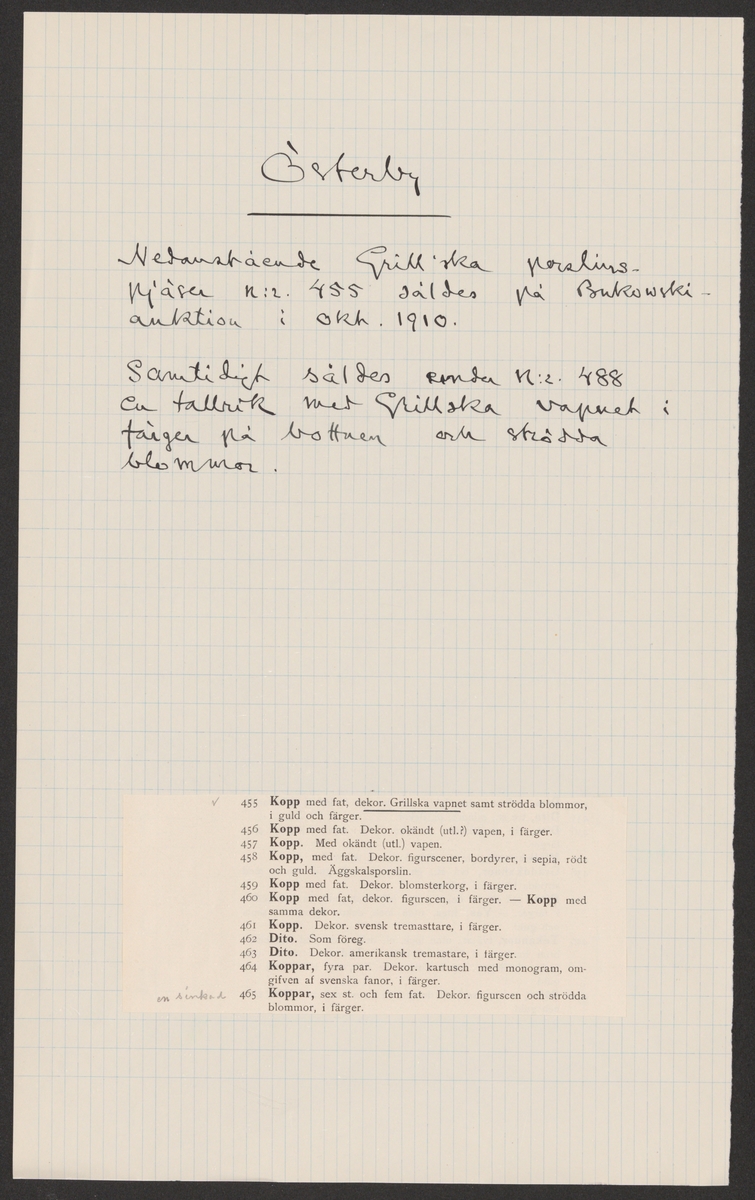 Österby
Nedanstående Grill'ska porslins-
pjäser n:r. 455 såldes på Bukowski-
auktion i okt. 1910.
Samtidigt såldes under N:r. 488
en tallrik med Grillska vapnet i
färger på bottnen och strödda
blommor.
✓ 455 Kopp med fat, dekor. Grillska vapnet samt strödda blommor,
i guld och färger.
456 Kopp med fat. Dekor. okändt (utl.?) vapen, i färger.
457 Kopp. Med okändt (utl.) vapen.
458 Kopp, med fat. Dekor. figurscener, bordyrer, i sepia, rödt
och guld. Äggskalsporslin.
459 Kopp med fat. Dekor. blomsterkorg, i färger.
460 Kopp med fat, dekor. figurscen, i färger. — Kopp med
samma dekor.
461 Kopp. Dekor. svensk tremasttare, i färger.
462 Dito. Som föreg.
463 Dito. Dekor. amerikansk tremastare, i färger.
464 Koppar, fyra par. Dekor. kartusch med monogram, om-
gifven af svenska fanor, i färger.
en sinkad 465 Koppar, sex st. och fem fat. Dekor. figurscen och strödda
blommor, i färger.